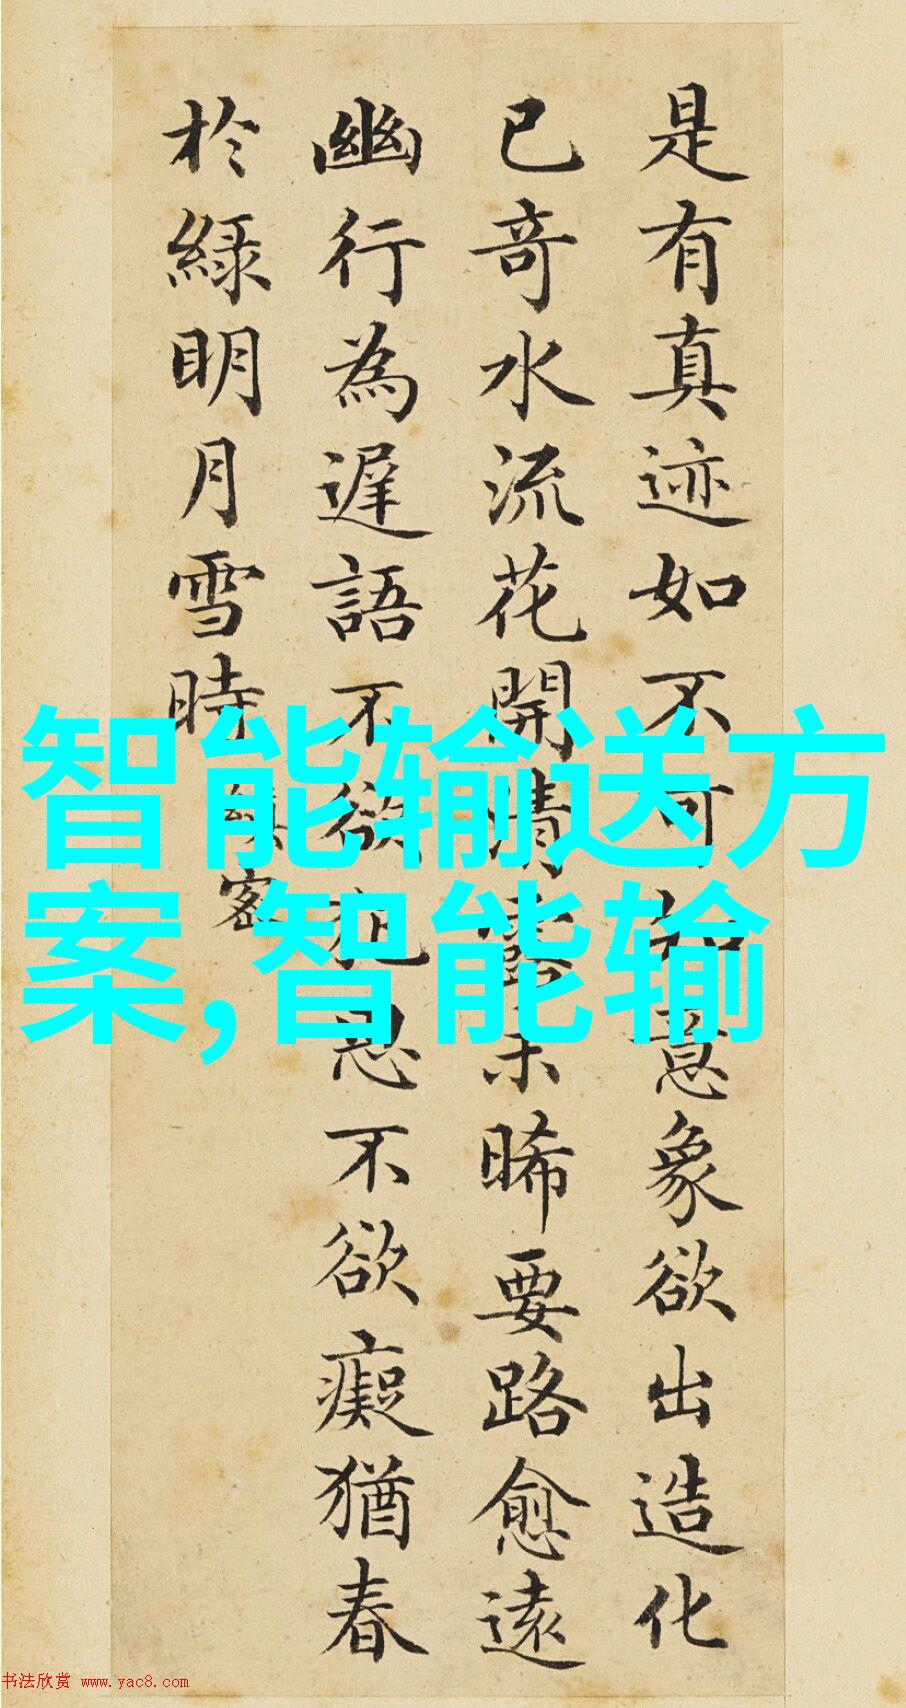 是有真迹如不可知意象欲出造化
已奇水流花開清露未晞要路愈遠
幽行為遲語不欲犯思不欲癡猶春
於綠明月雪時
縝密
智能输送方
案,智能输
书法欣赏 www.yac8.com